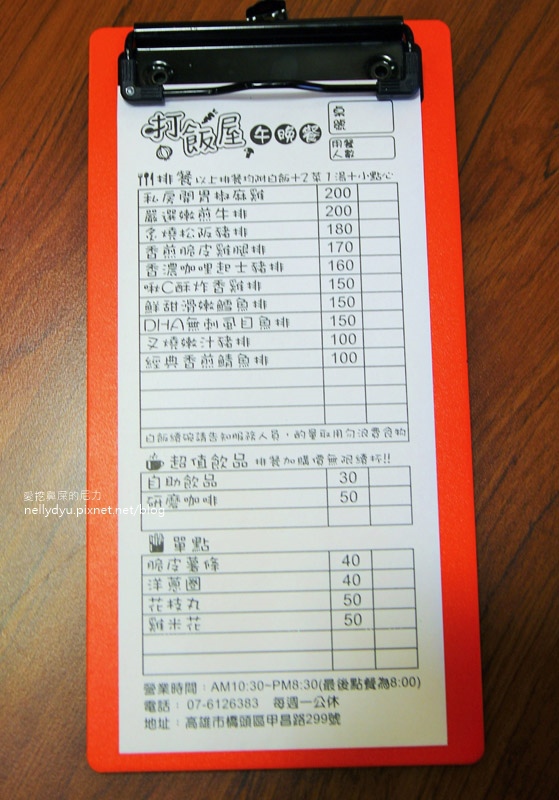 打飯屋 午晚餐
桌號
用餐人數
排餐 以上排餐均附白飯+2菜1湯+小點心
私房開胃椒麻雞 200
嚴選嫩煎牛排 200
炙燒松阪豬排 180
香煎脆皮雞腿排 170
香濃咖哩起士豬排 160
啾C酥炸香雞排 150
鮮甜滑嫩鱈魚排 150
DHA無刺虱目魚排 150
叉燒嫩汁豬排 100
經典香煎鯖魚排 100
白飯續碗請告知服務人員，酌量取用勿浪費食物
超值飲品 排餐加購價無限續杯!!
自助飲品 30
研磨咖啡 50
單點
脆皮薯條 40
洋蔥圈 40
花枝丸 50
雞米花 50
營業時間：AM10:30~PM8:30(最後點餐為8:00)
電話： 07-6126383 每週一公休
地址：高雄市橋頭區甲昌路299號
愛挖鼻屎的尼力
nellydyu.pixnet.net/blog